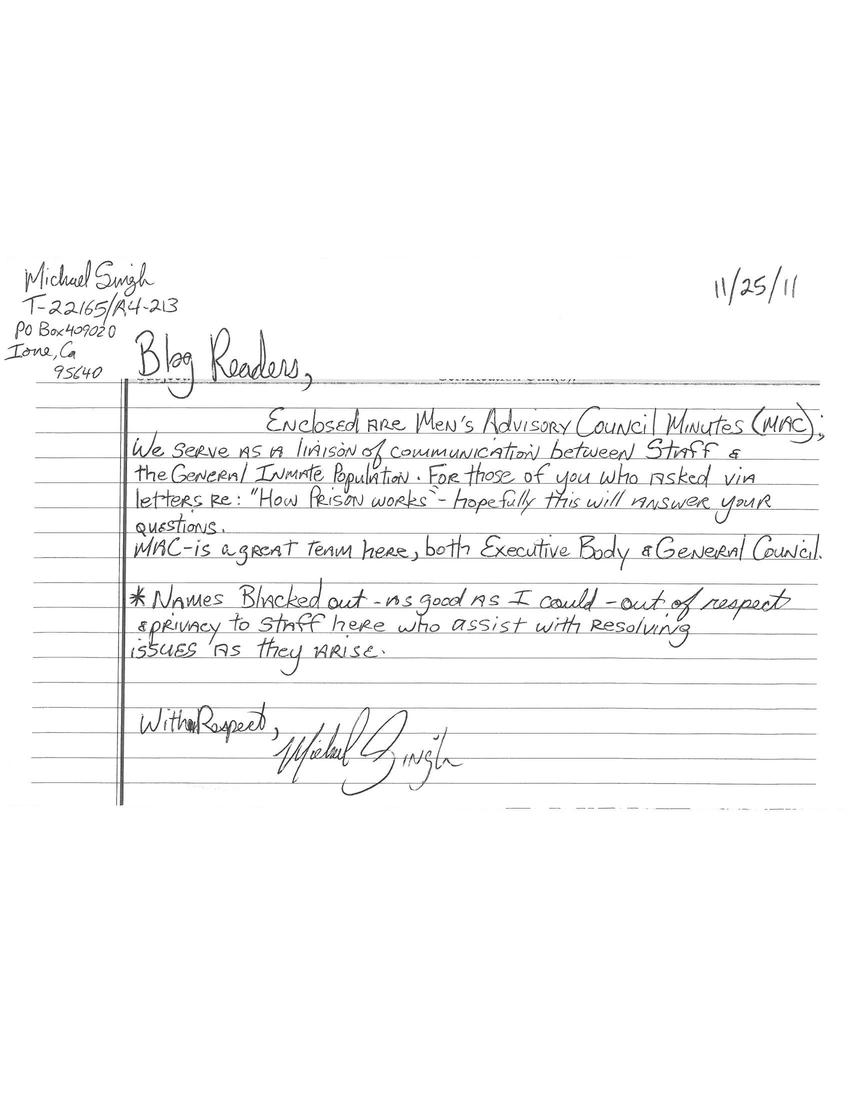 Michael Singh
T-22165/A4-213
PO Box 409020
Ione, Ca
95640
11/25/11
Blog Readers,
Enclosed are Men's Advisory Council Minutes (MAC);
We serve as a liaison of communication between Staff &
the General Inmate Population. For those of you who asked via
letters re: "How Prison works" - hopefully this will answer your
questions.
MAC-is a great team here, both Executive Body & General Council.
* Names Blacked out - as good as I could - out of respect
& privacy to staff here who assist with resolving
issues as they arise.
With Respect,
Michael Singh